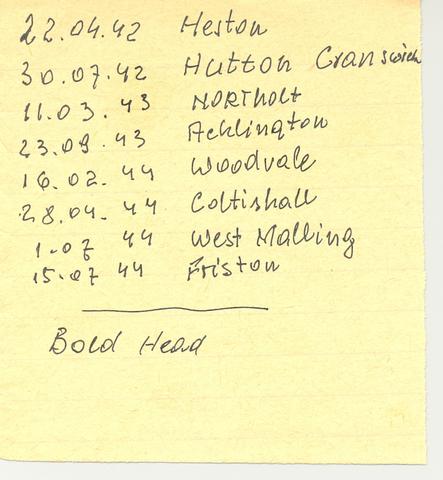 22.04.42 Heston
30.07.42 Hutton Cranswick
11.03.43 NORTHolt
23.09.43 Acklington
16.02.44 Woodvale
28.04.44 Coltishall
1.07 44 West Malling
15.07 44 Friston
Bold Head